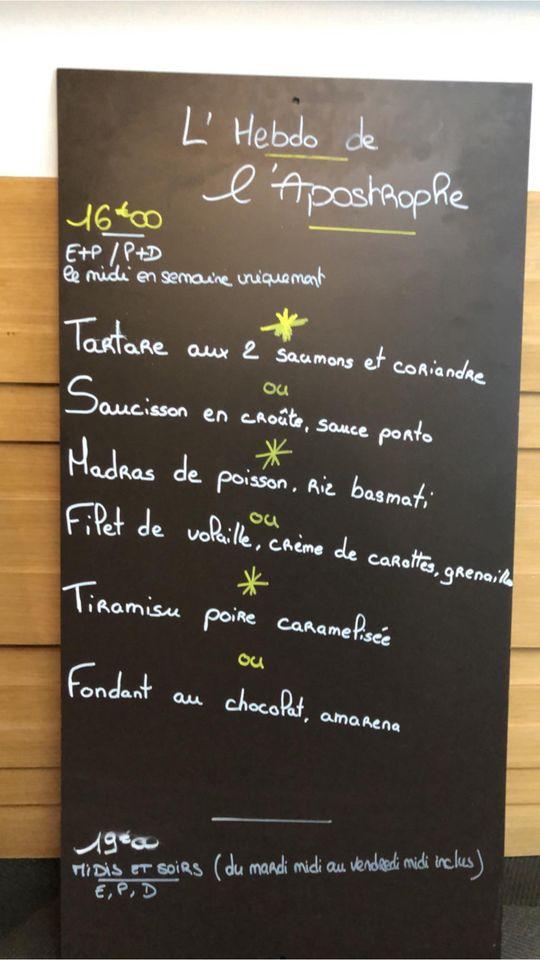 L'Hebdo de
l'Apostrophe
16€00
E+P / P+D
le midi en semaine uniquement
Tartare aux 2 saumons et coriandre
ou
Saucisson en croûte, sauce porto
Madras de poisson, riz basmati
ou
Filet de volaille, crème de carottes, grenaille
Tiramisu poire caramelisée
ou
Fondant au chocolat, amarena
19€00
MIDIS ET SOIRS (du mardi midi au vendredi midi inclus)
E, P, D